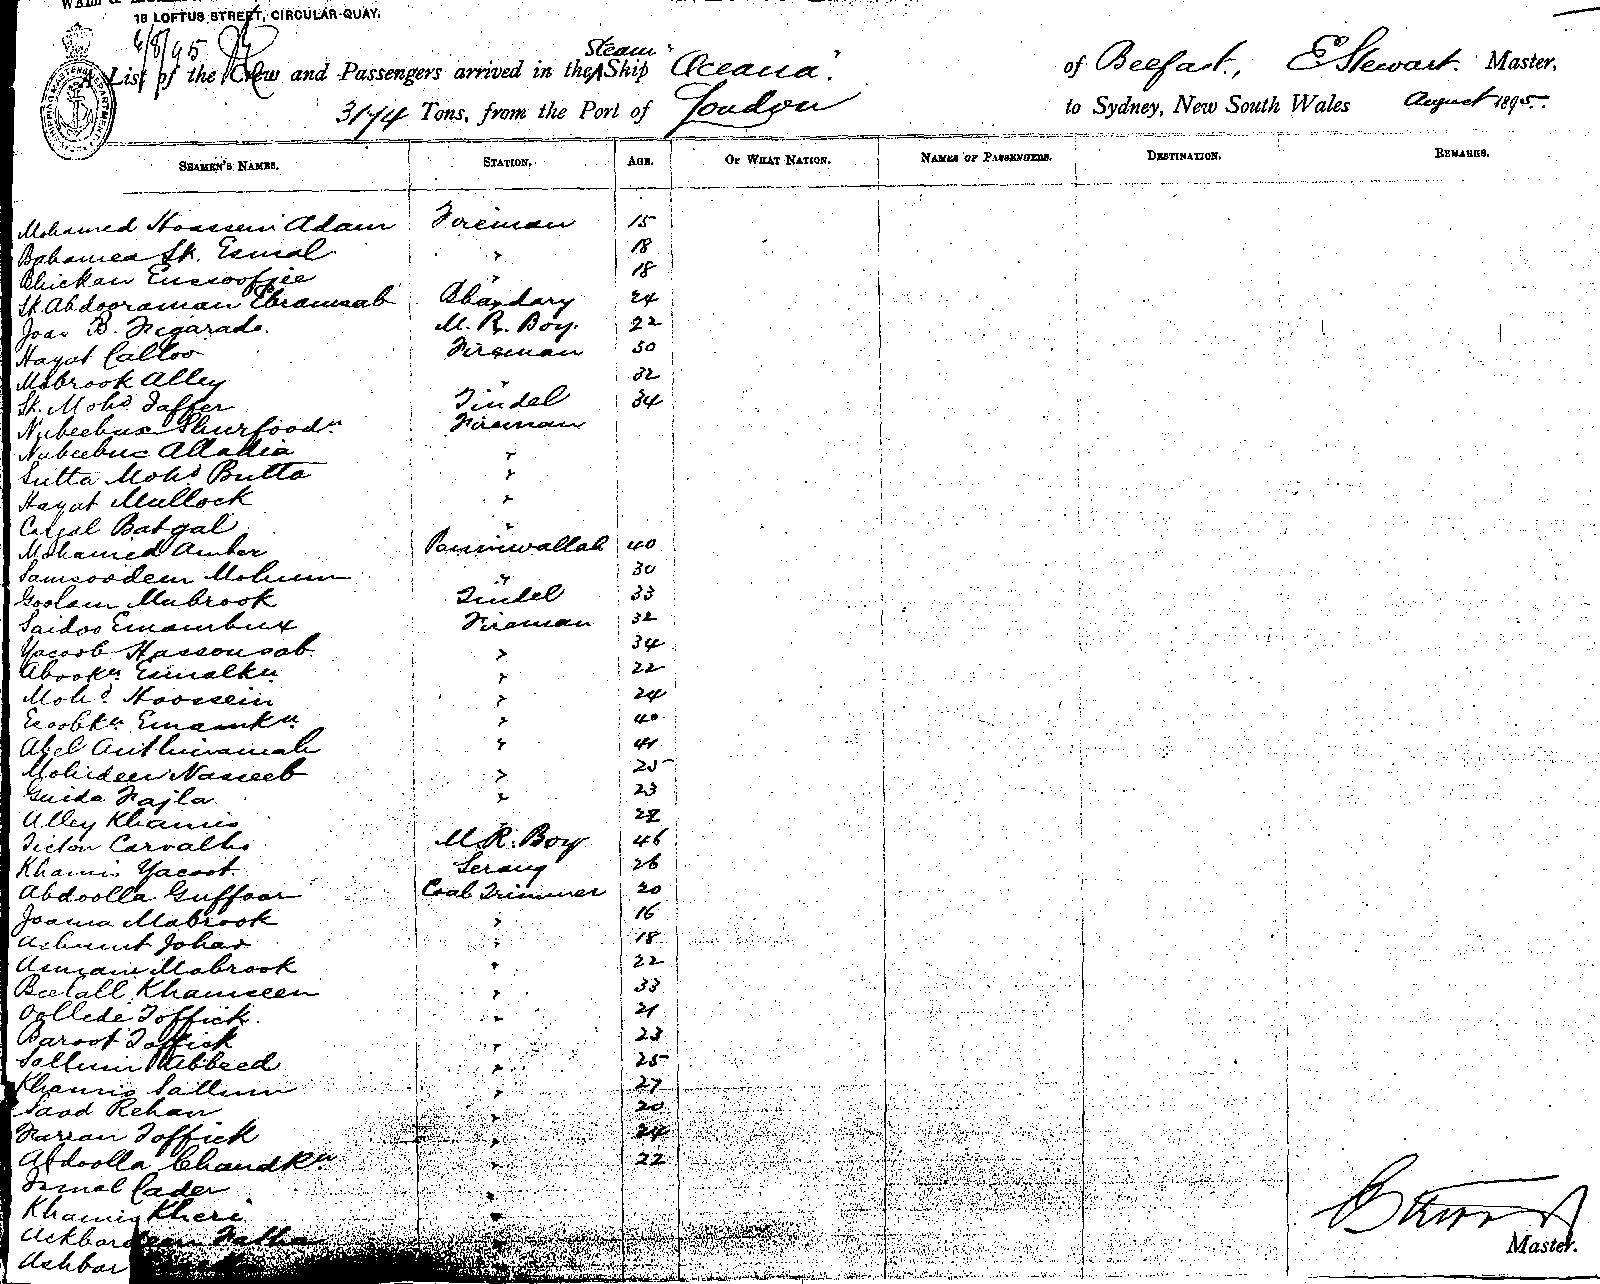 18 LOFTUS STREET, CIRCULAR-QUAY.
6/8/95
A List of the Crew and Passengers arrived in the Steam Ship "Oceana" of Belfast, E Stewart. Master,
3174 Tons, from the Port of London to Sydney, New South Wales August 1895.
SEAMEN'S NAMES. STATION. AGE. OF WHAT NATION. NAMES OF PASSENGERS. DESTINATION. REMARKS.
Mohamed Hoossein Adam Fireman 15
Bahamea Sk. Esmal " 18
Bhickan Eussoofjee " 18
Sk. Abdooraman Ebramsab Bhandary 24
Joao B. Figarado. M. R. Boy. 22
Hayat Calloo Fireman 50
Mabrook Alley " 32
Sk. Mohd Jaffer Tindel 34
Nubeebux Shurfoodn Fireman
Nubeebux Alladia "
Sutta Mohd Butta "
Hayat Mullock "
Batgal "
Mohamed Amber Panniwallah 40
Samsoodeen " 30
Goolam Mubrook Tindel 33
Saidoo Emambux Fireman 32
Yacoob Hassonsab " 34
Abookr Esmalkn " 22
Mohd Hoossein " 24
Esoobkn Emamkn " 40
Abel " 41
Mohideen Nasseeb " 25
Fajla " 23
Alley Khamis " 22
Carvalho M. R. Boy 46
Khamis Yacoot Serang 26
Abdoolla Guffoor Coal Trimmer 20
Jooma Mabrook " 16
Achmut Johar " 18
Asmani Mabrook " 22
Beelall Khamseen " 33
Toffick " 21
Baroot Toffick " 23
Sallim Abbeed " 25
Khamis Sallim " 27
Saad Rehan " 20
Farran Toffick " 24
Abdoolla Chandkn " 22
Ismal Cader "
Khamis Kheri "
Ackbar
Ackbar
Master.